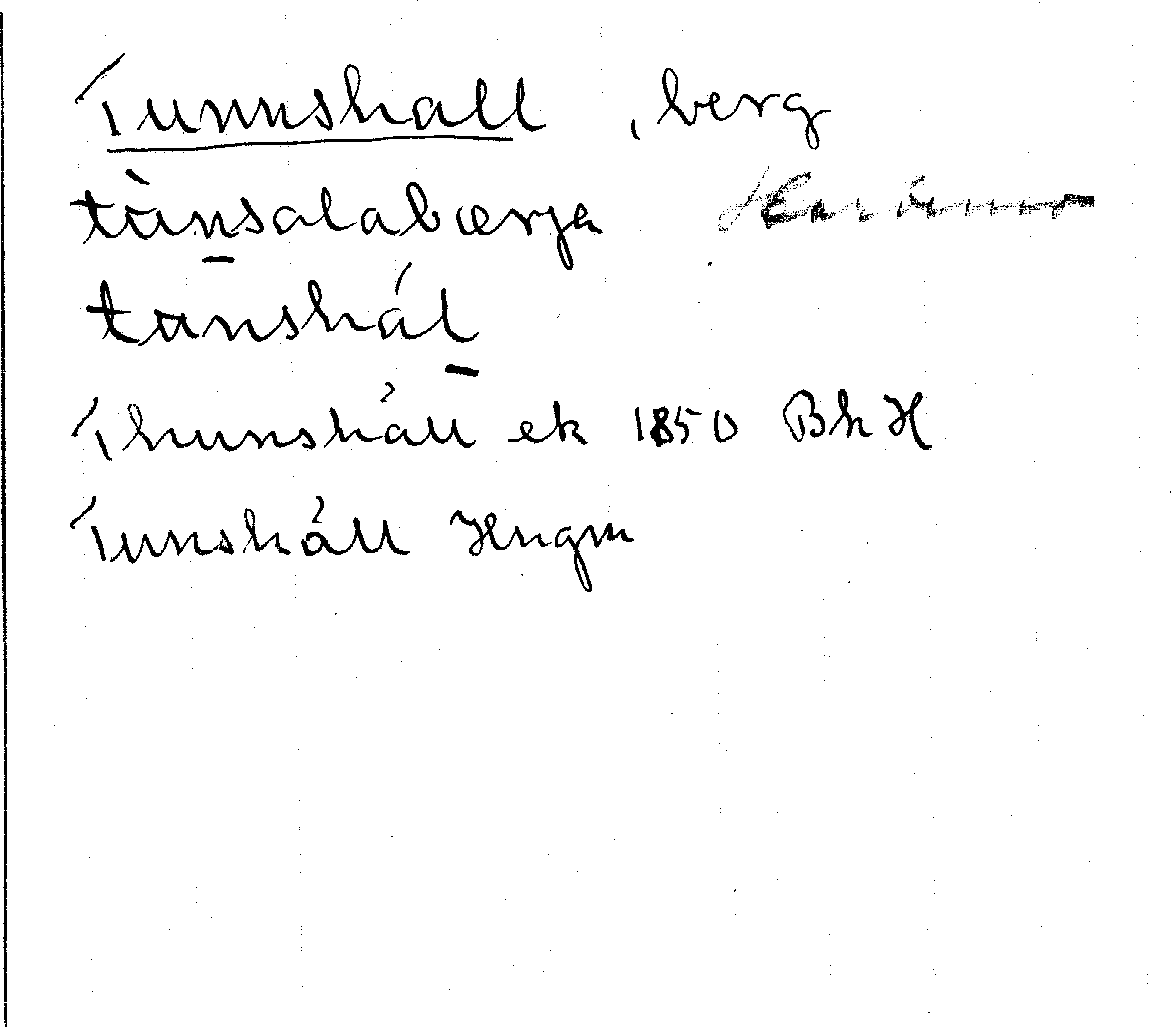 Tunnshall, berg
tànsalabærja
tanshál
Thunshåll ek 1850 BhH
Tunshåll Hngm